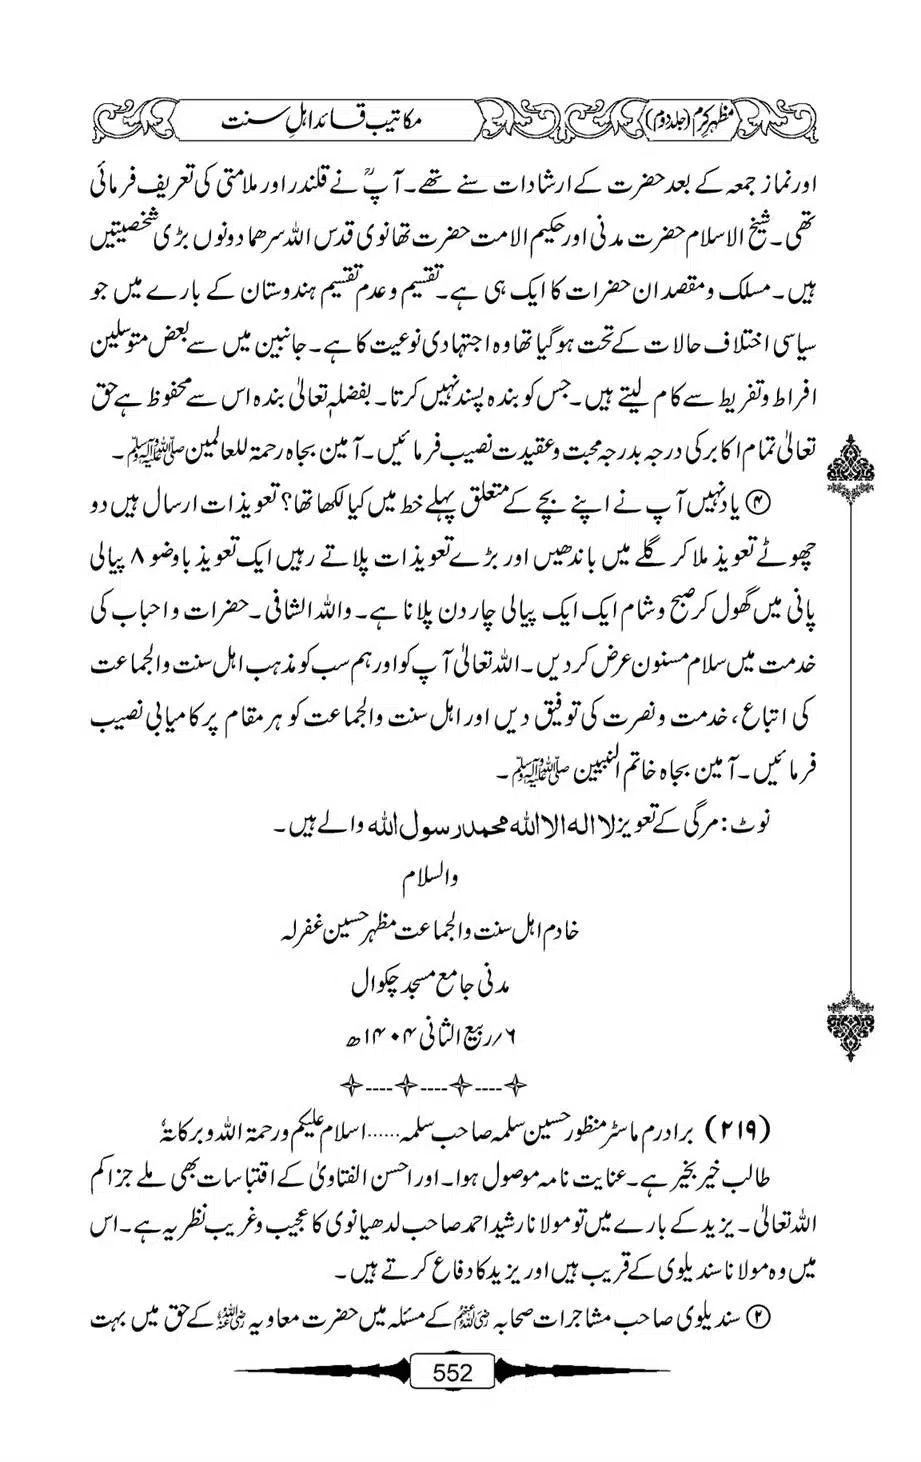 مظہر کرم (جلد دوم) مکاتیب قائد اہل سنت
اور نماز جمعہ کے بعد حضرت کے ارشادات سنے تھے۔ آپؒ نے قلندر اور ملامتی کی تعریف فرمائی
تھی۔ شیخ الاسلام حضرت مدنی اور حکیم الامت حضرت تھانوی قدس اللہ سرھما دونوں بڑی شخصیتیں
ہیں۔ مسلک و مقصد ان حضرات کا ایک ہی ہے۔ تقسیم و عدم تقسیم ہندوستان کے بارے میں جو
سیاسی اختلاف حالات کے تحت ہو گیا تھا وہ اجتہادی نوعیت کا ہے۔ جانبین میں سے بعض متوسلین
افراط و تفریط سے کام لیتے ہیں۔ جس کو بندہ پسند نہیں کرتا۔ بفضلہٖ تعالیٰ بندہ اس سے محفوظ ہے حق
تعالیٰ تمام اکابر کی درجہ بدرجہ محبت و عقیدت نصیب فرمائیں۔ آمین بجاہ رحمۃ للعالمین ﷺ۔
④ یاد نہیں آپ نے اپنے بچے کے متعلق پہلے خط میں کیا لکھا تھا؟ تعویذات ارسال ہیں دو
چھوٹے تعویذ ملا کر گلے میں باندھیں اور بڑے تعویذات پلاتے رہیں ایک تعویذ باوضو ۸ پیالی
پانی میں گھول کر صبح و شام ایک ایک پیالی چار دن پلانا ہے۔ واللہ الشافی۔ حضرات و احباب کی
خدمت میں سلام مسنون عرض کر دیں۔ اللہ تعالیٰ آپ کو اور ہم سب کو مذہب اہل سنت والجماعت
کی اتباع، خدمت و نصرت کی توفیق دیں اور اہل سنت والجماعت کو ہر مقام پر کامیابی نصیب
فرمائیں۔ آمین بجاہ خاتم النبیین ﷺ۔
نوٹ: مرگی کے تعویز لا الہ الا اللہ محمد رسول اللہ والے ہیں۔
والسلام
خادم اہل سنت والجماعت مظہر حسین غفرلہ
مدنی جامع مسجد چکوال
۶/ ربیع الثانی ۱۴۰۴ھ
(۲۱۹) برادرم ماسٹر منظور حسین سلمہ صاحب سلمہ...... اسلام علیکم ورحمۃ اللہ وبرکاتہٗ
طالب خیر بخیر ہے۔ عنایت نامہ موصول ہوا۔ اور احسن الفتاویٰ کے اقتباسات بھی ملے جزاکم
اللہ تعالیٰ۔ یزید کے بارے میں تو مولانا رشید احمد صاحب لدھیانوی کا عجیب و غریب نظریہ ہے۔ اس
میں وہ مولانا سندیلوی کے قریب ہیں اور یزید کا دفاع کرتے ہیں۔
② سندیلوی صاحب مشاجرات صحابہ رضی اللہ عنہم کے مسئلہ میں حضرت معاویہ رضی اللہ عنہ کے حق میں بہت
552